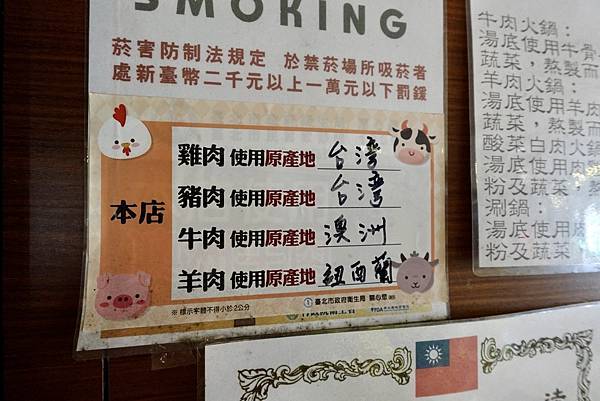 SMOKING
菸害防制法規定 於禁菸場所吸菸者
處新臺幣二千元以上一萬元以下罰鍰
本店
雞肉 使用原產地 台湾
豬肉 使用原產地 台湾
牛肉 使用原產地 澳洲
羊肉 使用原產地 紐西蘭
※ 標示字體不得小於2公分
臺北市政府衛生局 關心您
牛肉火鍋：
湯底使用牛骨
蔬菜，熬製而
羊肉火鍋：
湯底使用羊肉
蔬菜，熬製而
酸菜白肉火鍋
湯底使用肉
粉及蔬菜，熬
涮鍋：
湯底使用肉
粉及蔬菜